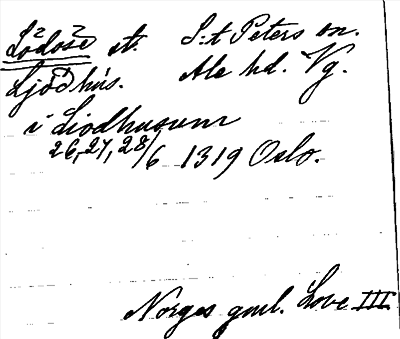 Lödöse st. S:t Peters sn.
Ljóðhús. Ale hd. Vg.
i Liodhusum
26, 27, 28/6 1319 Oslo.
Norges gml. Love III